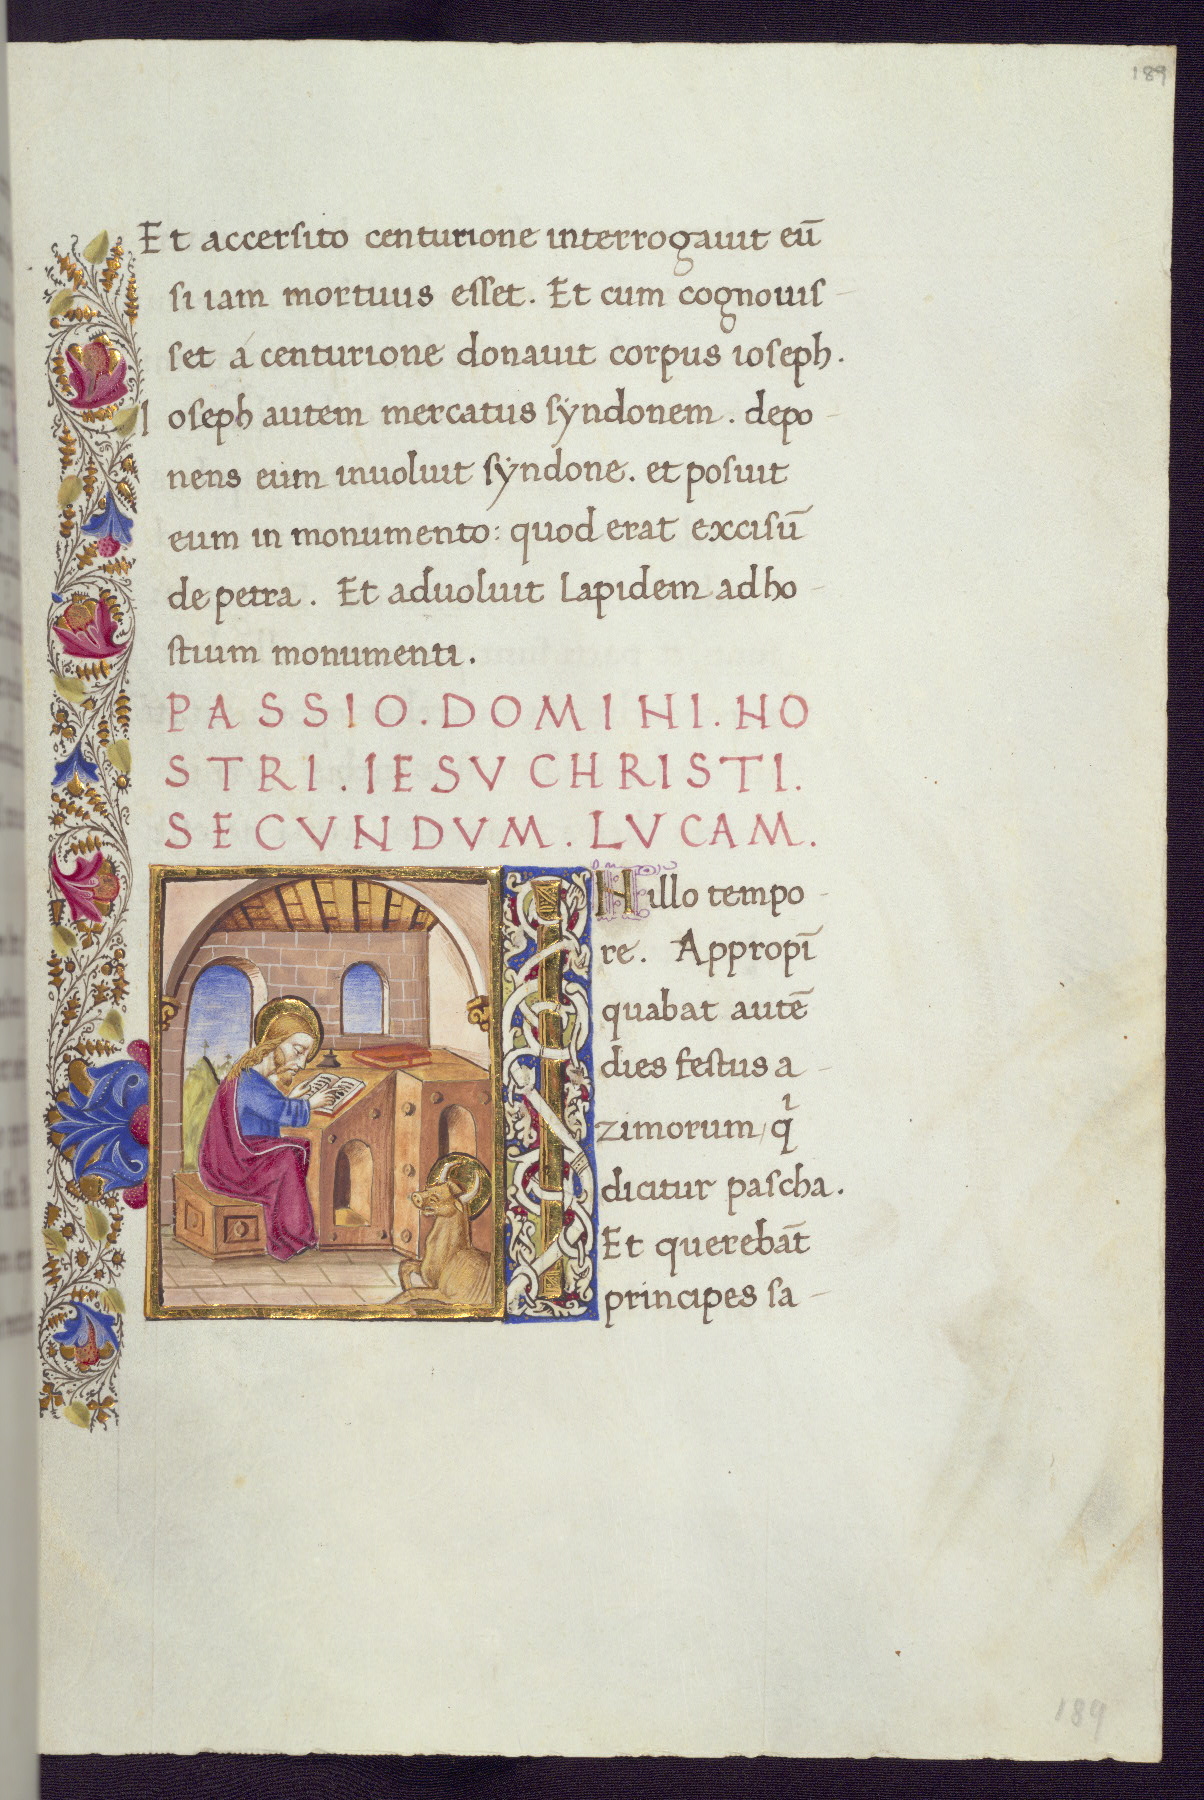 189
Et accersito centurione interrogauit eū
si iam mortuus esset. Et cum cognouis-
set á centurione donauit corpus ioseph.
Ioseph autem mercatus sÿndonem. depo-
nens eum inuoluit sÿndone. et posuit
eum in monumento: quod erat excisū
de petra. Et aduoluit lapidem ad ho-
stium monumenti.
PASSIO.DOMINI.NO
STRI.IESU CHRISTI.
SECVNDVM.LVCAM.
IN illo tempo-
re. Appropī
quabat autē
dies festus a-
zimorum, qͥ
dicitur pascha.
Et querebāt
principes sa-
189